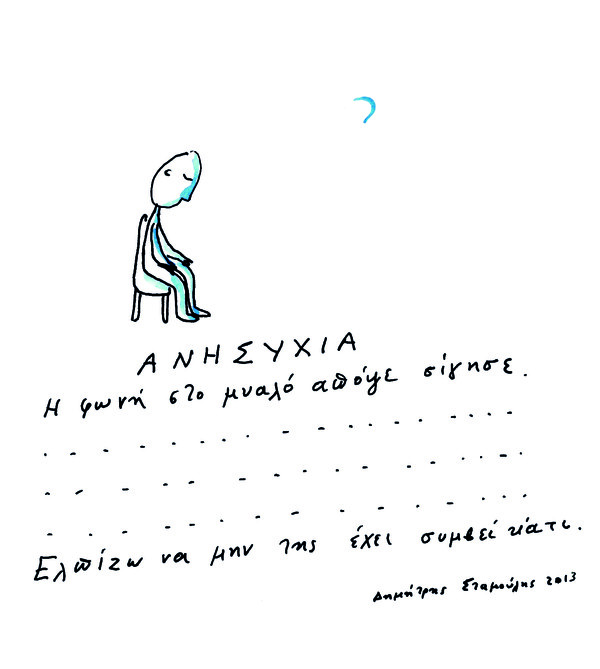 ΑΝΗΣΥΧΙΑ
Η φωνή στο μυαλό απόψε σίγησε.
. . . . . . . . . . . . . . . . . .
. . . . . . . . . . . . . . . . . .
. . . . . . . . . . . . . . . . . .
Ελπίζω να μην της έχει συμβεί κάτι.
Δημήτρης Σταμούλης 2013